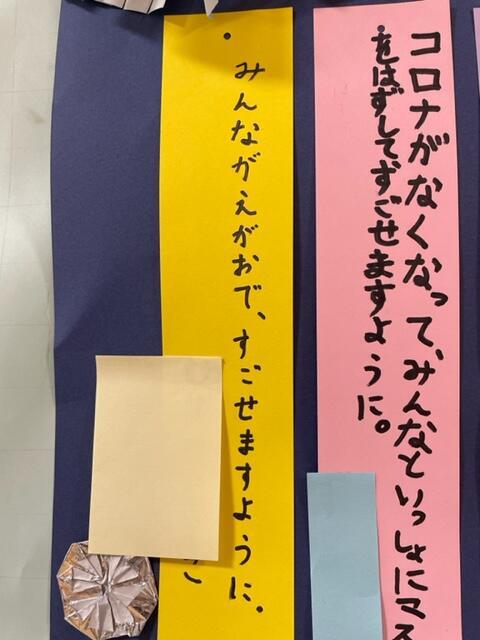 コロナがなくなって、みんなといっしょにマス
をはずしてすごせますように。
・みんながえがおで、すごせますように。